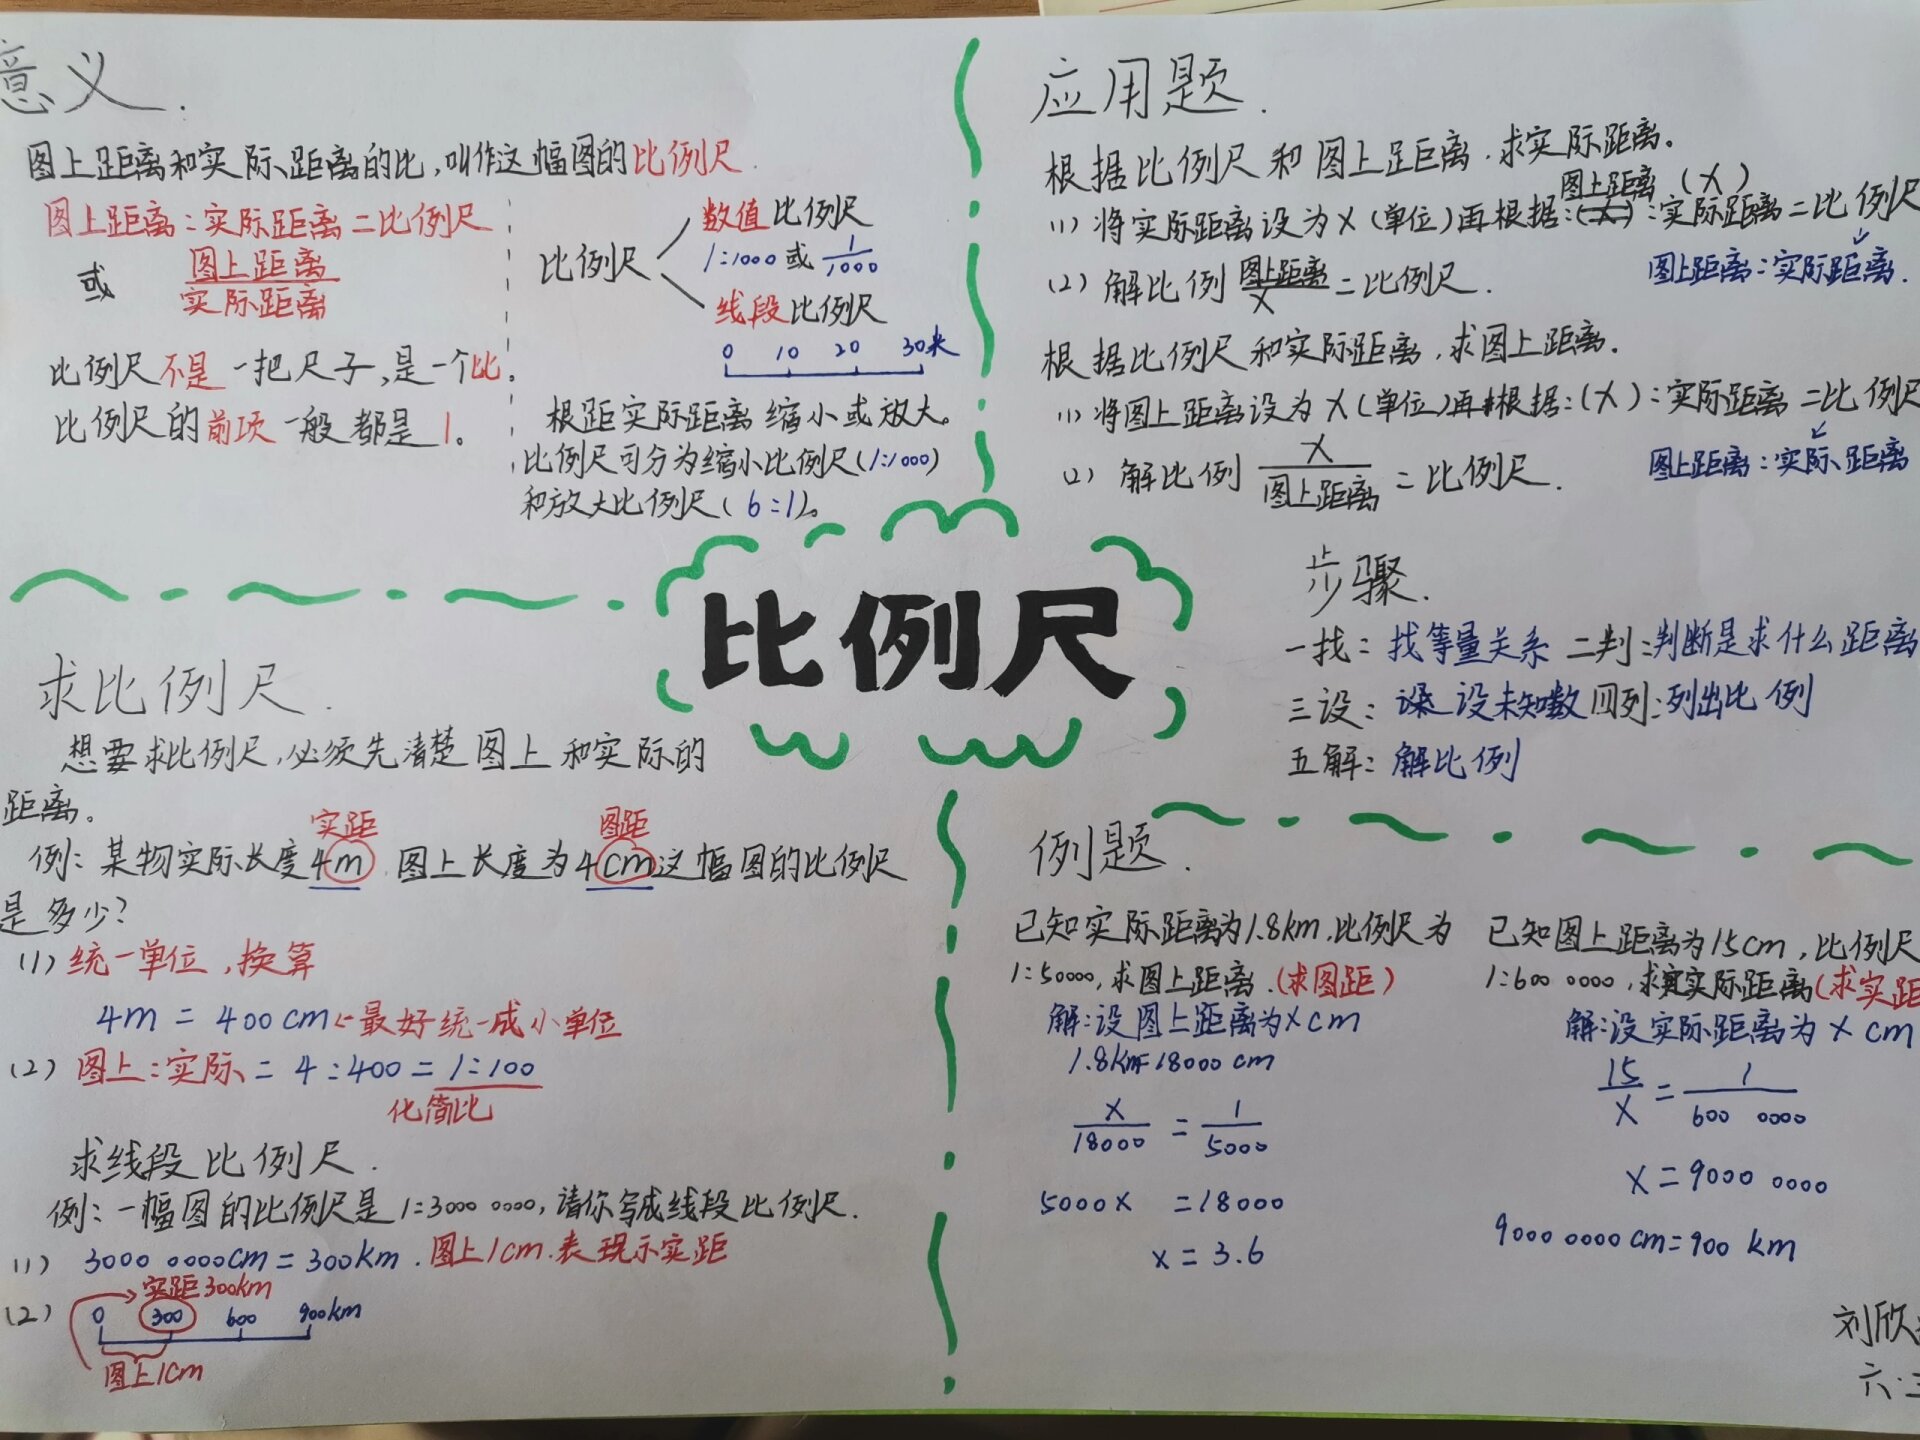 意义.
图上距离和实际距离的比,叫作这幅图的比例尺.
图上距离:实际距离=比例尺
或 图上距离/实际距离
比例尺不是一把尺子,是一个比。
比例尺的前项一般都是1。
比例尺
数值比例尺
1:1000或1/1000
线段比例尺
0 10 20 30米
根距实际距离缩小或放大。
比例尺可分为缩小比例尺(1:1000)
和放大比例尺(6:1)。
应用题.
根据比例尺和图上距离.求实际距离。
图上距离(X)
(1)将实际距离设为X(单位)再根据: :实际距离=比例尺
图上距离:实际距离.
(2)解比例 图上距离/X=比例尺.
根据比例尺和实际距离,求图上距离.
(1)将图上距离设为X(单位)再根据:(X):实际距离=比例尺
图上距离:实际距离
(2)解比例 X/图上距离=比例尺.
步骤.
一找:找等量关系 二判:判断是求什么距离
三设: 设未知数 四列:列出比例
五解:解比例
比例尺
求比例尺.
想要求比例尺,必须先清楚图上和实际的
距离.
实距 图距
例:某物实际长度4m.图上长度为4cm这幅图的比例尺
是多少?
(1)统一单位,换算
4m=400cm←最好统一成小单位
(2)图上:实际=4:400=1:100
化简比
求线段比例尺.
例:一幅图的比例尺是1:3000 0000,请你写成线段比例尺.
(1) 3000 0000cm=300km.图上1cm.表现示实距
实距300km
(2) 0 300 600 900km
图上1cm
例题.
已知实际距离为1.8km.比例尺为
1:50000,求图上距离.(求图距)
解:设图上距离为Xcm
1.8km=18000cm
X/18000=1/5000
5000X=18000
X=3.6
已知图上距离为15cm,比例尺
1:600 0000,求实际距离(求实距
解:设实际距离为Xcm
15/X=1/600 0000
X=9000 0000
9000 0000cm=900km
刘欣
六.三